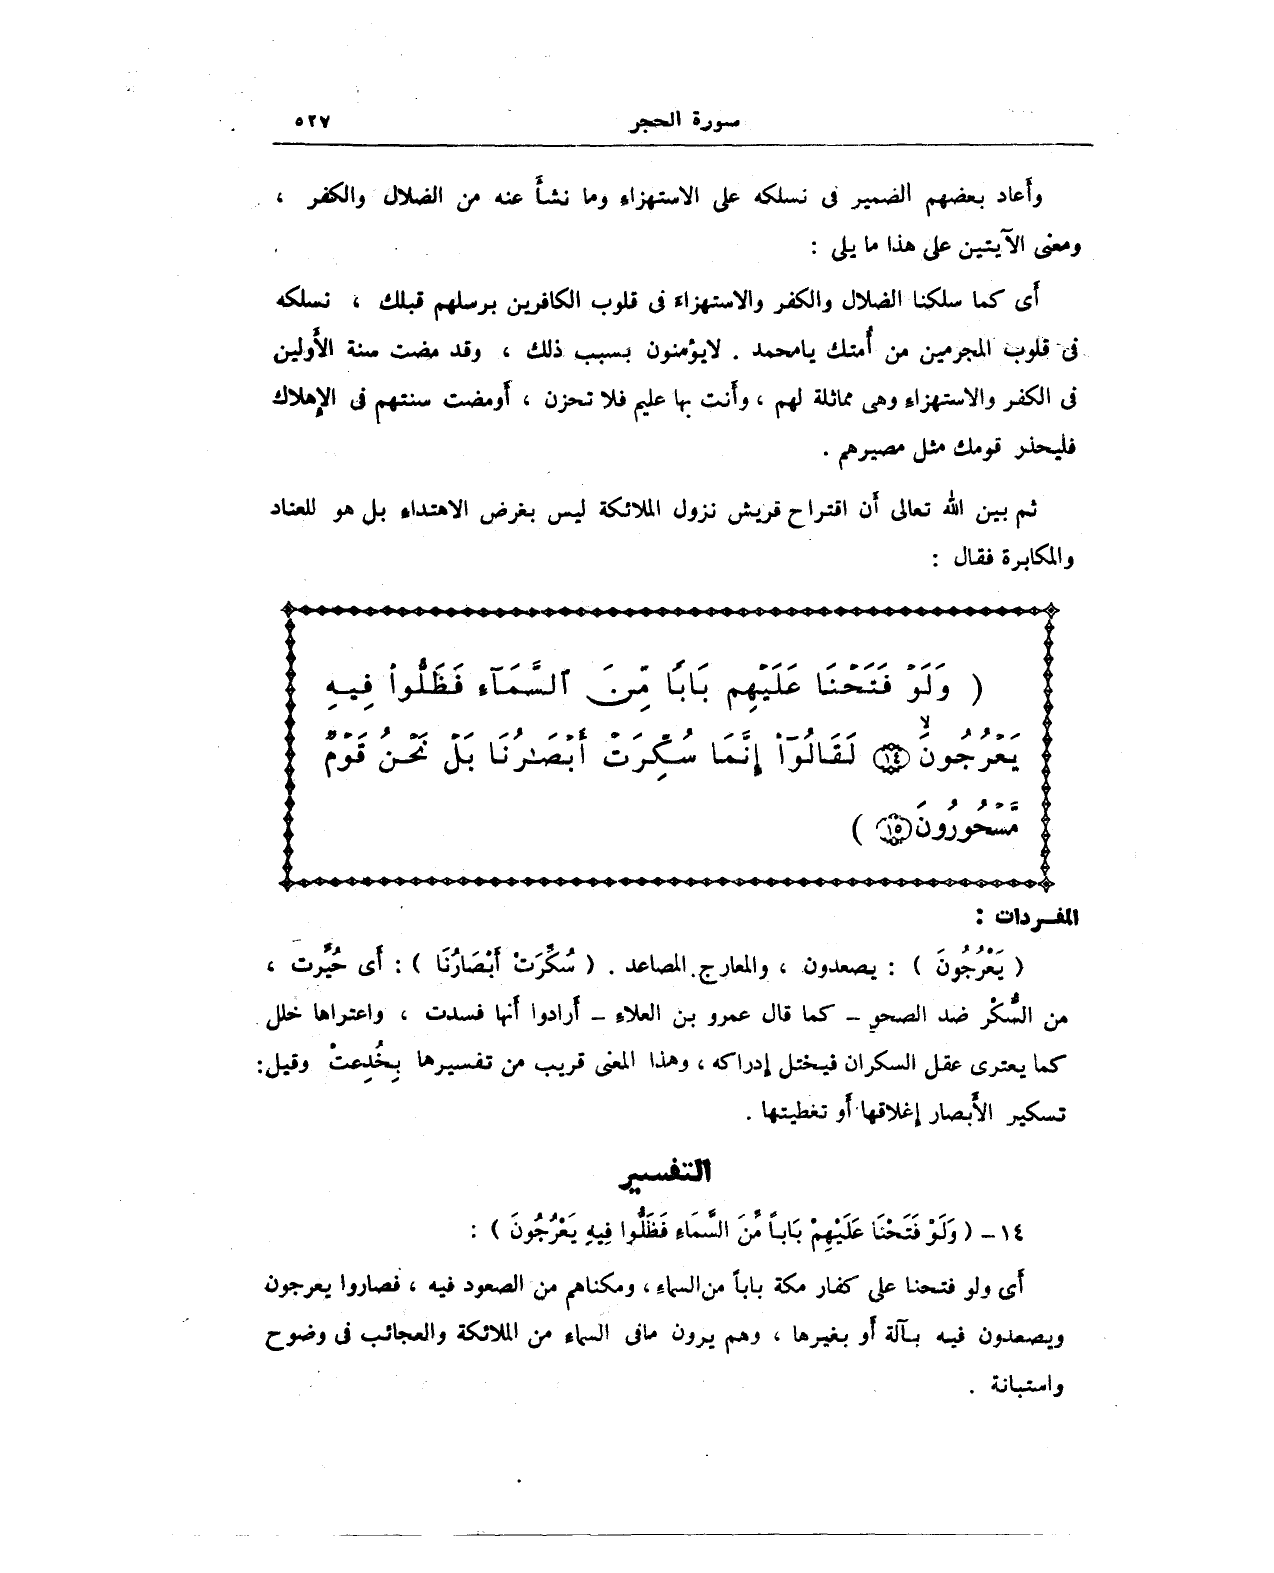 سورة الحجر ٥٢٧
وأعاد بعضهم الضمير فى نسلكه على الاستهزاء وما نشأ عنه من الضلال والكفر ،
ومعنى الآيتين على هذا ما يلى :
أى كما سلكنا الضلال والكفر والاستهزاء فى قلوب الكافرين برسلهم قبلك ، نسلكه
فى قلوب المجرمين من أُمتك يامحمد . لايؤمنون بسبب ذلك ، وقد مضت سنة الأَولين
فى الكفر والاستهزاء وهى مماثلة لهم ، وأَنت بها عليم فلا تحزن ، أَومضت سنتهم فى الإِهلاك
فليحذر قومك مثل مصيرهم .
ثم بين الله تعالى أَن اقتراح قريش نزول الملائكة ليس بغرض الاهتداء بل هو للعناد
والمكابرة فقال :
( وَلَوْ فَتَحْنَا عَلَيْهِم بَابًا مِّنَ ٱلسَّمَآءِ فَظَلُّوا۟ فِيهِ
يَعْرُجُونَ ۙ ١٤ لَقَالُوٓا۟ إِنَّمَا سُكِّرَتْ أَبْصَـٰرُنَا بَلْ نَحْنُ قَوْمٌ
مَّسْحُورُونَ ١٥ )
المفـردات :
( يَعْرُجُونَ ) : يصعدون ، والمعارج المصاعد . ( سُكِّرَتْ أَبْصَارُنَا ) : أَى حُيِّرت ،
من السُّكْر ضد الصحو – كما قال عمرو بن العلاء – أَرادوا أَنها فسدت ، واعتراها خلل
كما يعترى عقل السكران فيختل إدراكه ، وهذا المعنى قريب من تفسيرها بِخُدِعتْ وقيل:
تسكير الأَبصار إغلاقها أَو تغطيتها .
التفسير
١٤ – ( وَلَوْ فَتَحْنَا عَلَيْهِمْ بَاباً مِّنَ السَّمَاءِ فَظَلُّوا فِيهِ يَعْرُجُونَ ) :
أَى ولو فتحنا على كفار مكة باباً من السماء ، ومكناهم من الصعود فيه ، فصاروا يعرجون
ويصعدون فيه بآلة أَو بغيرها ، وهم يرون مافى السماء من الملائكة والعجائب فى وضوح
واستبانة .